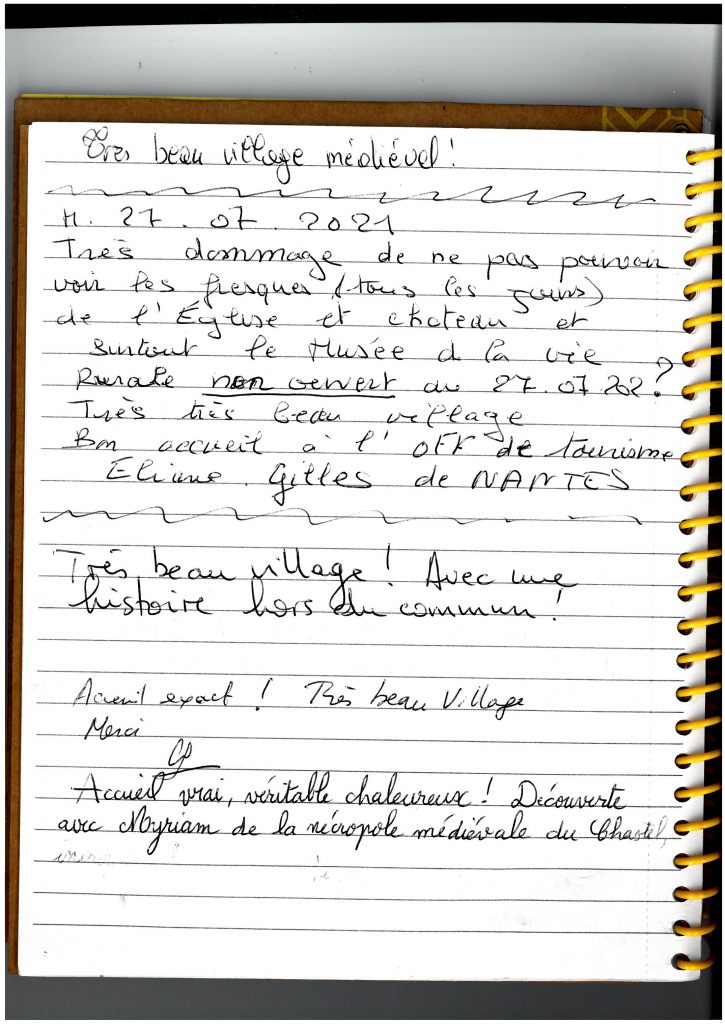 Très beau village médiéval !
M. 27.07.2021
Très dommage de ne pas pouvoir
voir les fresques (tous les jours)
de l'Église et chateau et
surtout le Musée d la vie
Rurale non ouvert au 27.07.202?
Très très beau village
Bon accueil à l'off de tourisme
Eliane. Gilles de NANTES
Très beau village ! Avec une
histoire hors du commun !
Accueil exact ! Très beau Village
Merci
Accueil vrai, véritable chaleureux ! Découverte
avec Myriam de la nécropole médiévale du Chastel,